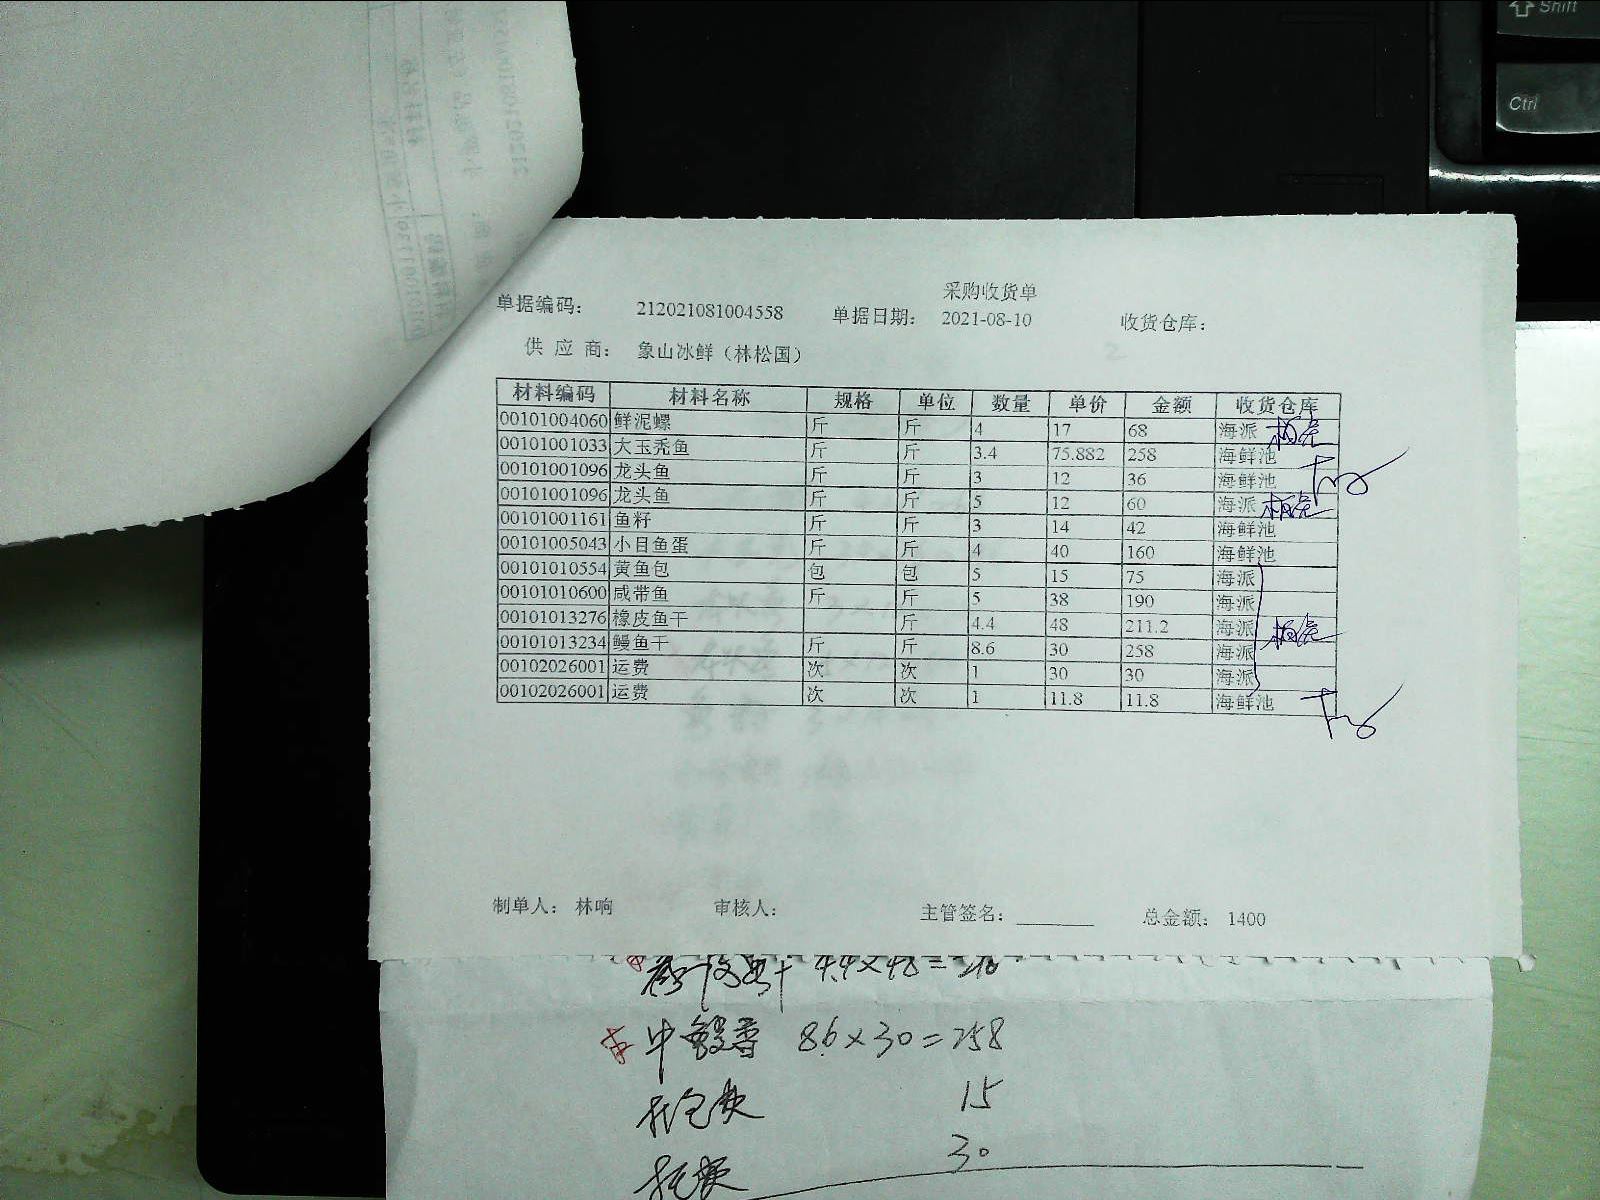 Shift
Ctrl
采购收货单
单据编码： 212021081004558 单据日期： 2021-08-10 收货仓库：
供 应 商： 象山冰鲜（林松国）
材料编码 材料名称 规格 单位 数量 单价 金额 收货仓库
00101004060 鲜泥螺 斤 斤 4 17 68 海派
00101001033 大玉秃鱼 斤 斤 3.4 75.882 258 海鲜池
00101001096 龙头鱼 斤 斤 3 12 36 海鲜池
00101001096 龙头鱼 斤 斤 5 12 60 海派
00101001161 鱼籽 斤 斤 3 14 42 海鲜池
00101005043 小目鱼蛋 斤 斤 4 40 160 海鲜池
00101010554 黄鱼包 包 包 5 15 75 海派
00101010600 咸带鱼 斤 斤 5 38 190 海派
00101013276 橡皮鱼干 斤 4.4 48 211.2 海派
00101013234 鳗鱼干 斤 斤 8.6 30 258 海派
00102026001 运费 次 次 1 30 30 海派
00102026001 运费 次 次 1 11.8 11.8 海鲜池
制单人： 林响 审核人： 主管签名： 总金额： 1400
4.4×48=
中 8.6×30=258
15
30